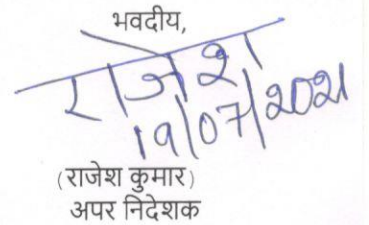 भवदीय,
राजेश
19/07/2021
(राजेश कुमार)
अपर निदेशक